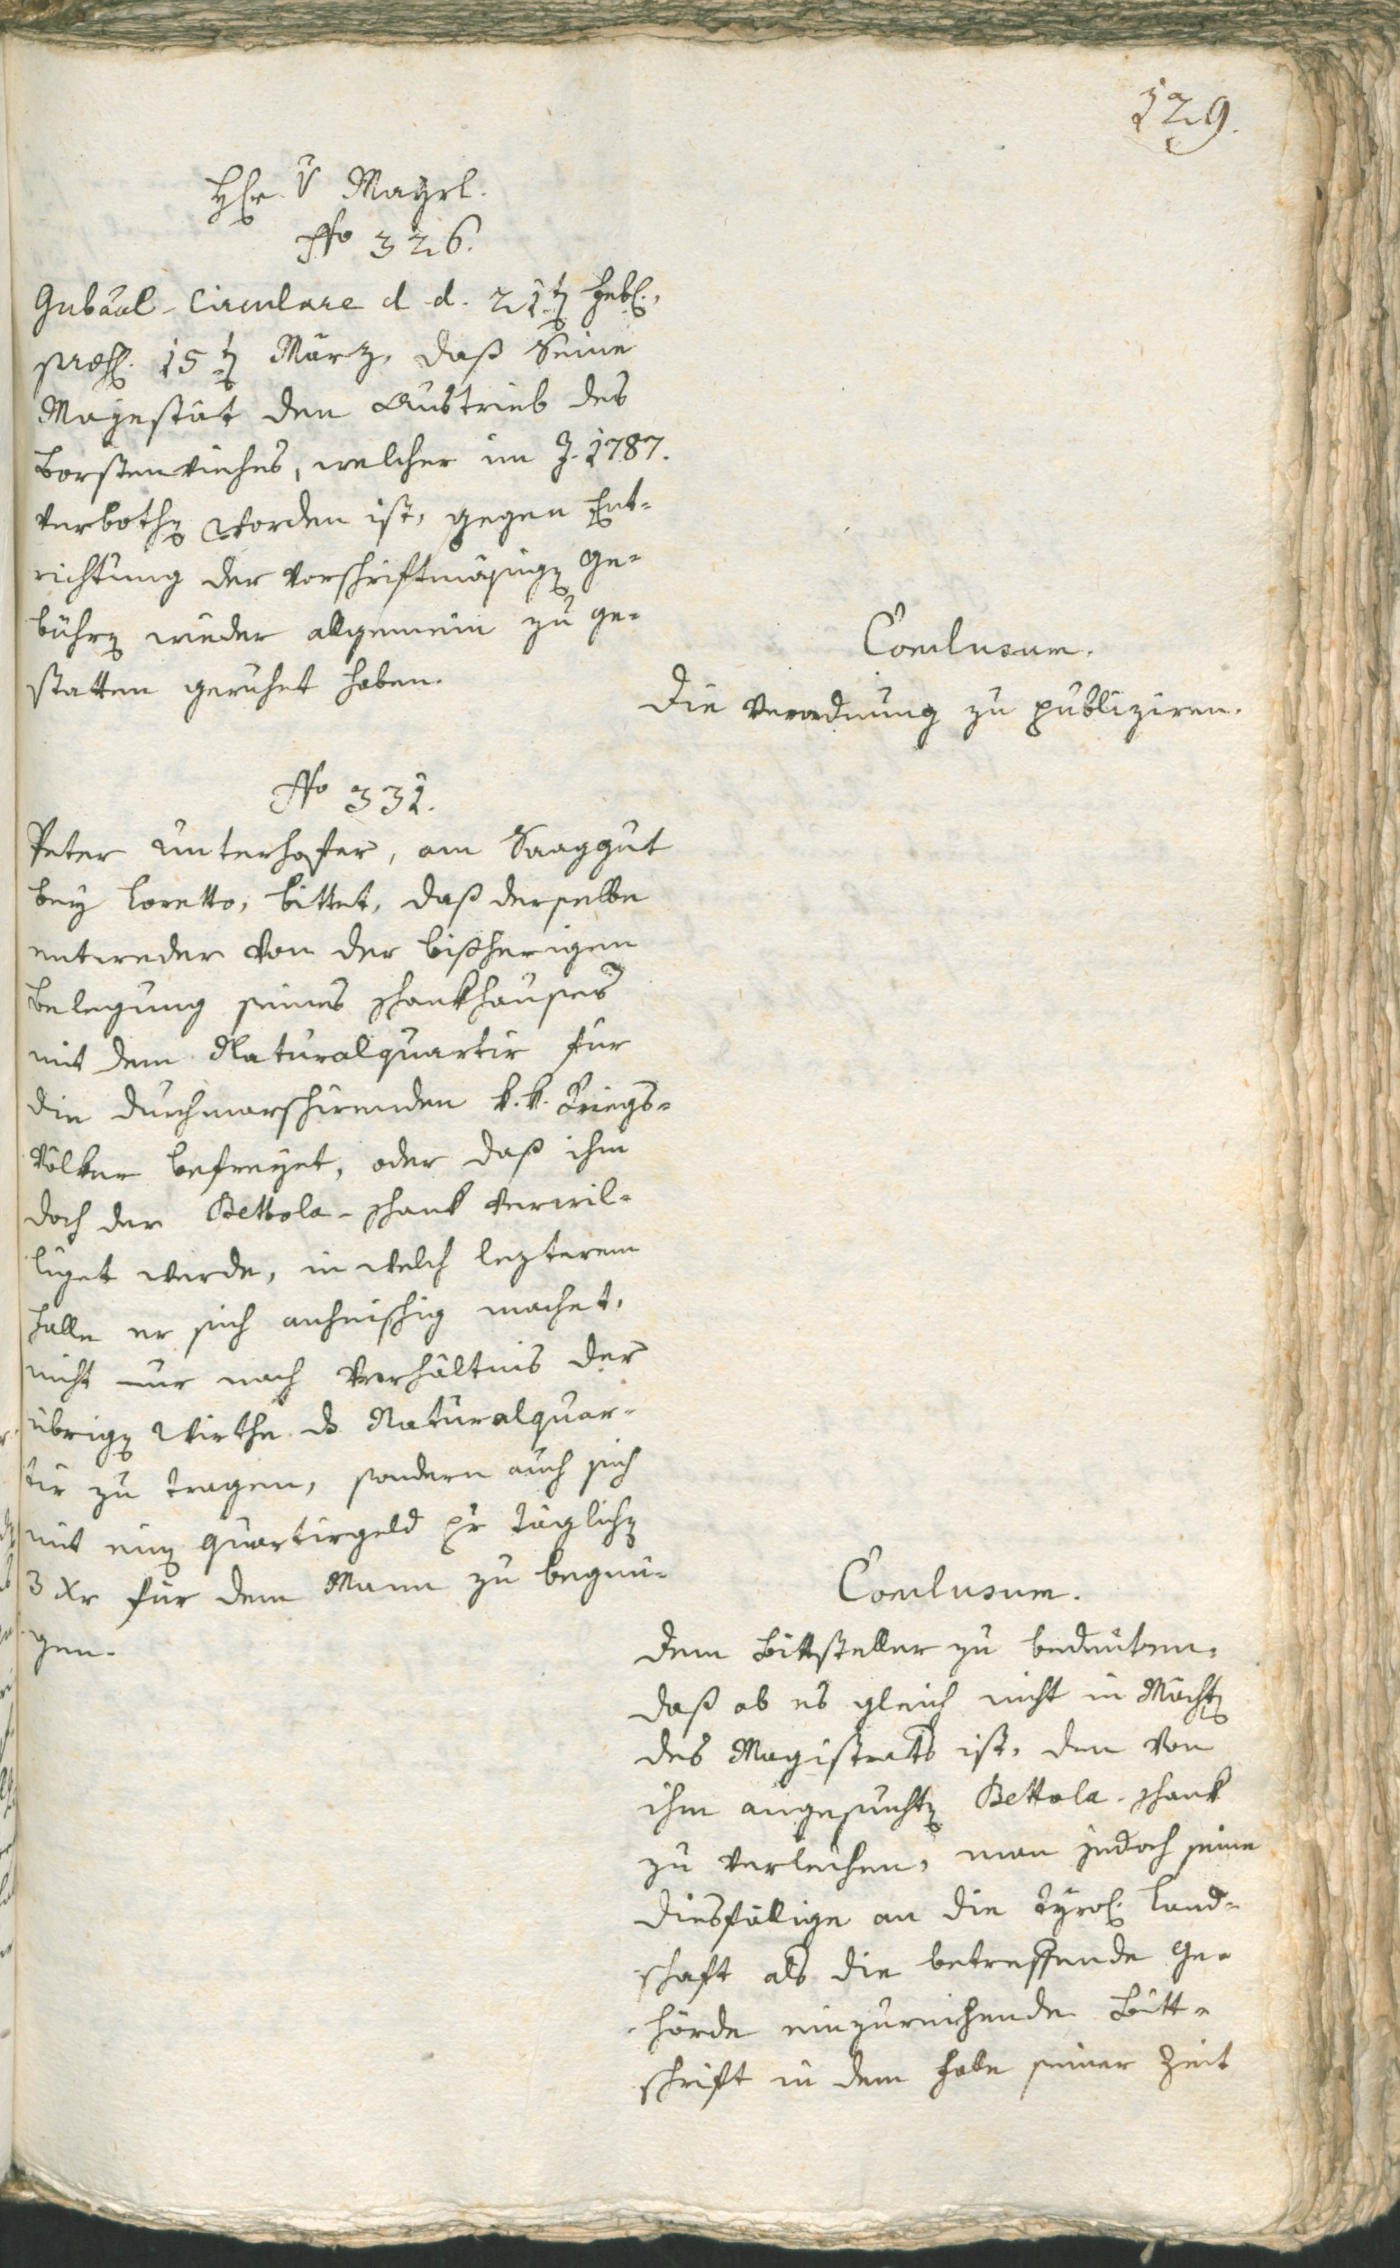 129.
H[err] v Mayrl.
No 326.
Gubäal-Circulare d. d. 21t[en] Hebl.,
praes. 15t[en] März, daß Seine
Mayestät den Austrieb des
Borstenviehes, welcher im J. 1787.
verboth[en] worden ist, gegen Ent-
richtung der vorschriftmäsig[en] Ge-
bühr[en] wieder allgemein zu ge-
statten geruhet haben.
Conclusum.
Die Verordnung zu publiziren.
No 331.
Peter Unterhofer, am Saaggut
bey Loretto, bittet, daß derselbe
entweder von der bißherigen
Belegung seines Schankhauses
mit dem Naturalquartir für
die durchmarschirenden k. k. Kriegs-
völker befreyet, oder daß ihm
doch der Bettola-Schank verwil-
liget werde, in welch lezterem
Falle er sich anheischig machet,
nicht nur nach Verhältnis der
übrig[en] Wirthe ds Naturalquar-
tir zu tragen, sondern auch sich
mit ein[em] Quartirgeld pr täglich[en]
3 Xr für dem Mann zu begnü-
gen.
Conclusum.
Dem Bittsteller zu bedeuten,
daß ob es gleich nicht in Mächt[en]
des Magistrats ist, den von
ihm angesucht[en] Bettola-Schank
zu verleihen, man jedoch seine
diesfälige an die Tyrol. Land-
schaft als die betreffende Be-
hörde einzureichende Bitt-
schrift in dem Falle seiner Zeit